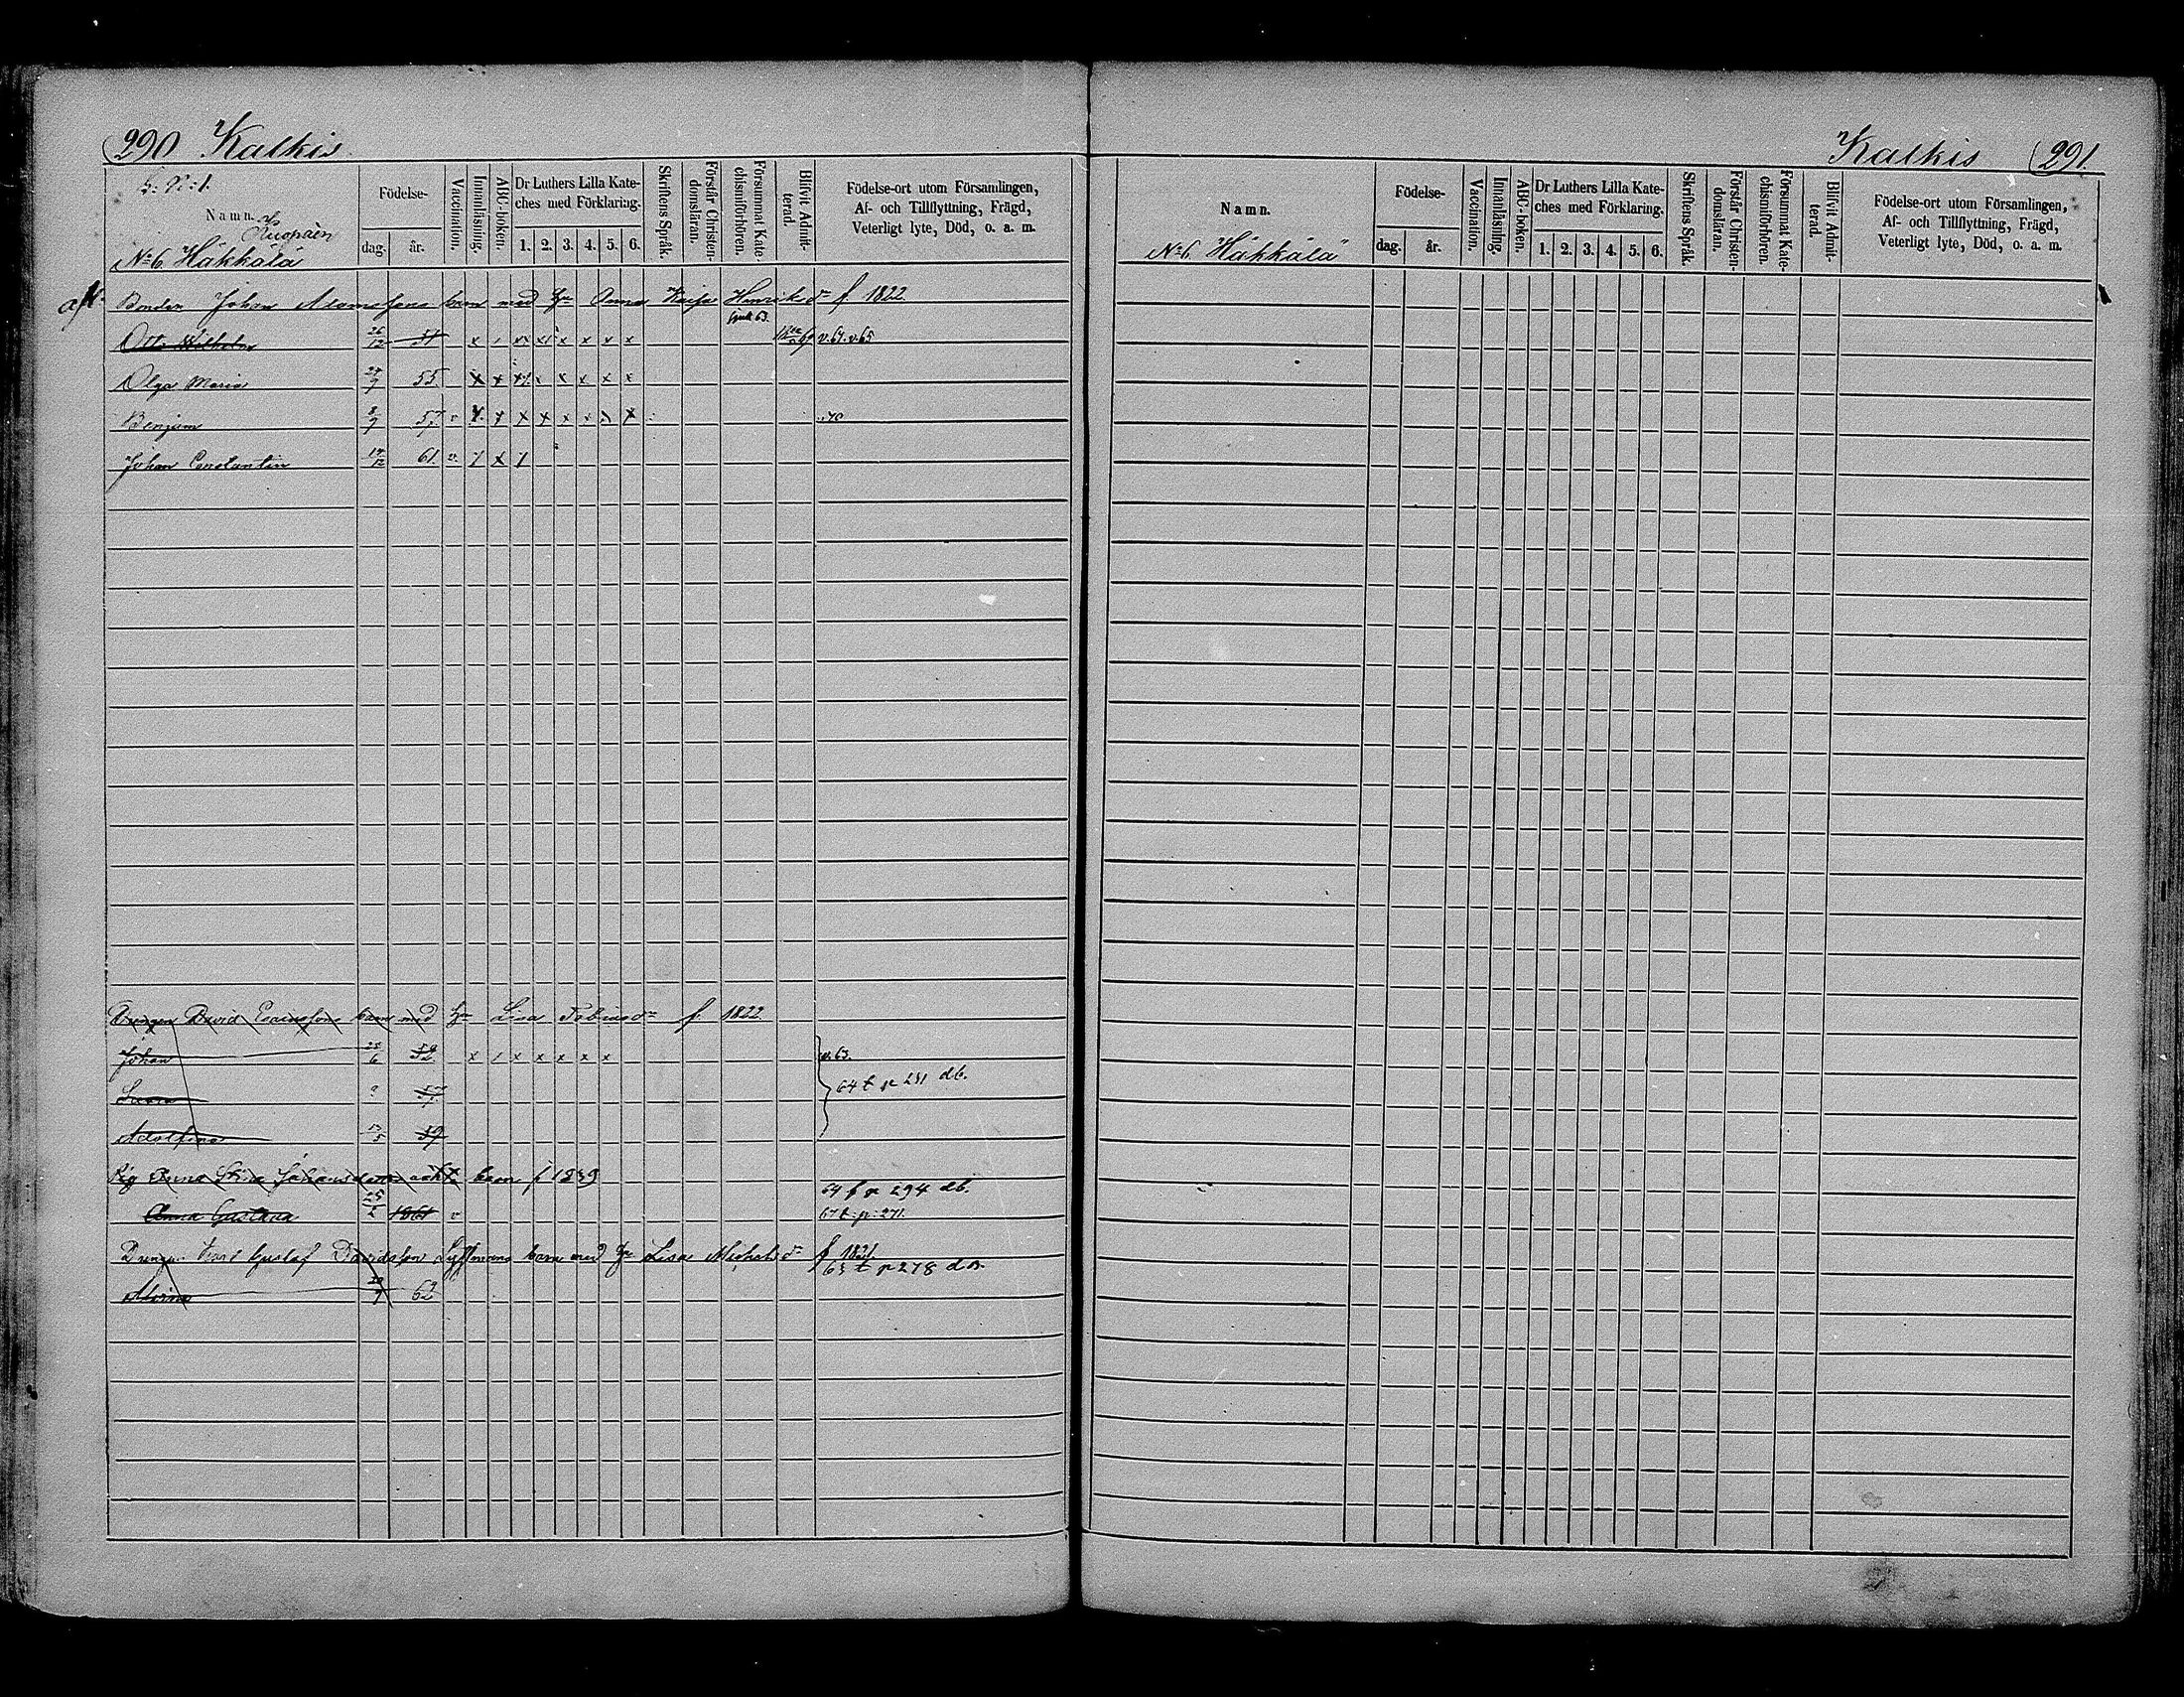 290 Kalkis
Namn.
Kuopaen
No 6. Häkkälä
Födelse-
dag. år.
Vaccination.
Innanläsning.
ABC-boken.
Dr Luthers Lilla Kate-
ches med Förklaring.
1. 2. 3. 4. 5. 6.
Skriftens Språk.
Förstår Christen-
domsläran.
Försummat Kate-
chismiförhören.
Blifvit Admit-
terad.
Födelse-ort utom Församlingen,
Af- och Tillflyttning, Frägd,
Veterligt lyte, Död, o. a. m.
Bonden Johan Adamssons barn med Hu Anna Kaisa Henriksdr f. 1822
Otto Wilhelm 26/12 51 x / xx x x x x x v. 64. v. 65
Olga Maria 7 55 x x x x x x x
Benjam 8/9 57 v x x x x x x x x 70
Johan Constantin 12 61. v. / x /
Drengen David Esaiassons barn med Hu Lisa Tobiasdr f. 1822
Johan 28/6 52 x / x x x x x v. 63.
64 t p 231 db.
57
Adolfina 5 59
Pig Anna Stina Johansdotters oäkta barn f 1839
64 f p 294 db.
Anna Gustava 1861 v 67 t. p. 271.
Drengen Karl Gustaf Davidsson barn med Hu Lisa Michelsdr f 1831.
63 t p 278 db.
7 62
Kalkis 291.
Namn.
No 6. Häkkälä
Födelse-
dag. år.
Vaccination.
Innanläsning.
ABC-boken.
Dr Luthers Lilla Kate-
ches med Förklaring.
1. 2. 3. 4. 5. 6.
Skriftens Språk.
Förstår Christen-
domsläran.
Försummat Kate-
chismiförhören.
Blifvit Admit-
terad.
Födelse-ort utom Församlingen,
Af- och Tillflyttning, Frägd,
Veterligt lyte, Död, o. a. m.